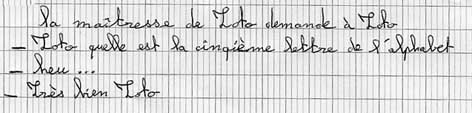 la maîtresse de Toto demande à Toto
– Toto quelle est la cinqième lettre de l'alphabet
– heu ...
– Très bien Toto